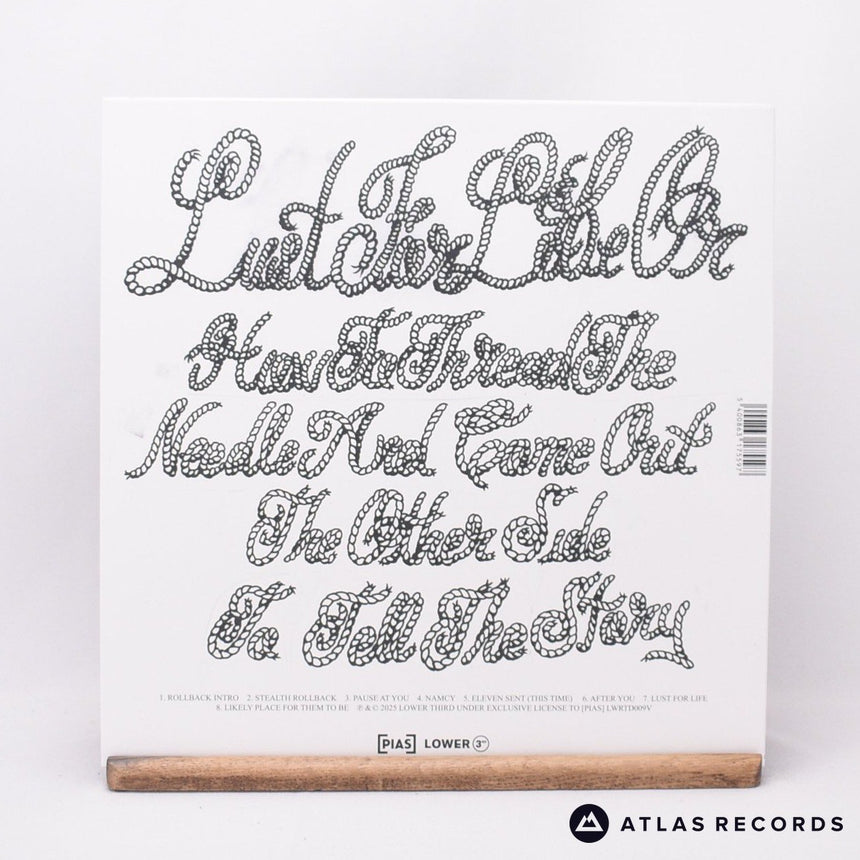 Lust For Life Or
How To Thread The
Needle And Come Out
The Other Side
To Tell The Story
5 400863 175597
1. ROLLBACK INTRO 2. STEALTH ROLLBACK 3. PAUSE AT YOU 4. NAMCY 5. ELEVEN SENT (THIS TIME) 6. AFTER YOU 7. LUST FOR LIFE
8. LIKELY PLACE FOR THEM TO BE ℗ & © 2025 LOWER THIRD UNDER EXCLUSIVE LICENSE TO [PIAS] LWRTD009V
[PIAS] LOWER 3RD
ATLAS RECORDS